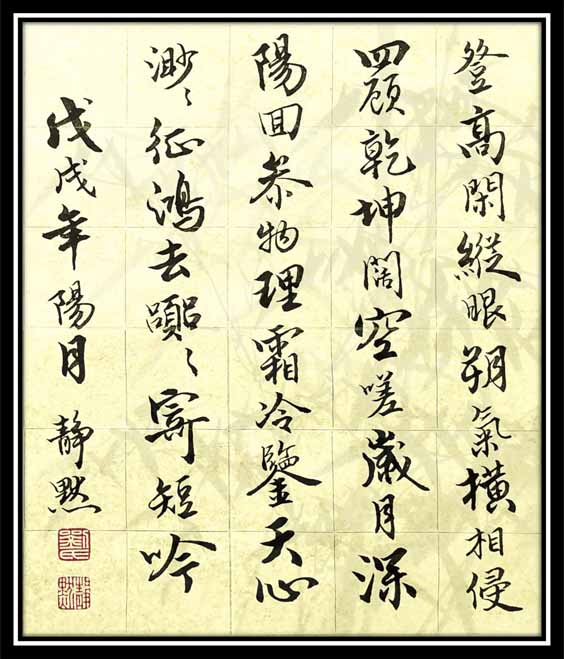 登高閑縱眼朔氣橫相侵
四顧乾坤闊空嗟歲月深
陽回參物理霜冷鑒天心
渺〻征鴻去寄短吟
戊戌年陽月 靜默
靜默